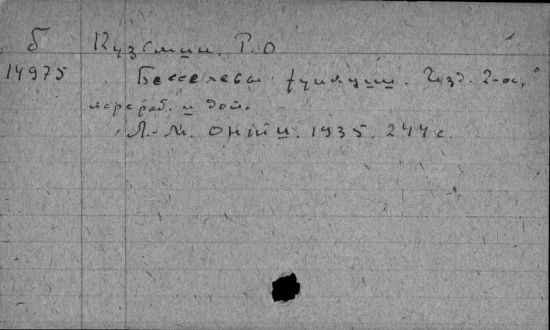 б Кузьмин. Р.О
14975 Бесселевы функции. Изд. 2-ое,
перераб. и доп.
Л.-М. ОНТИ. 1935. 244 с.